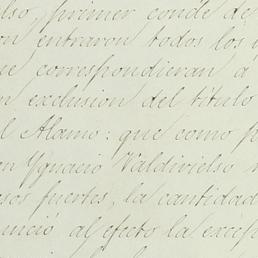 lso, primer conde de
on entraron todos los
ue correspondieran á
n exclusion del titulo
l Alamo: que como p
on Ygnacio Valdivielso
esos fuertes, la cantidad
unció al efecto la excep